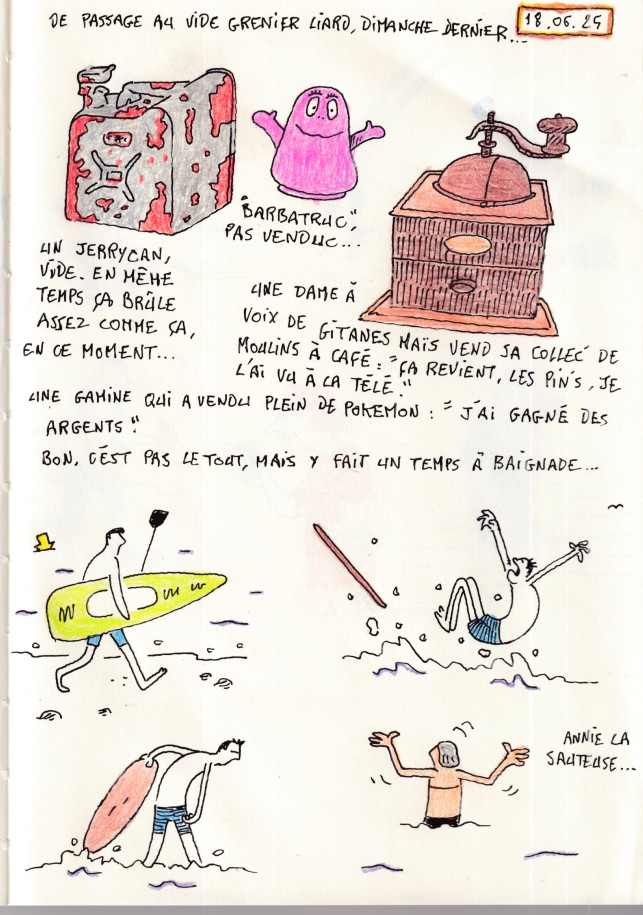 DE PASSAGE AU VIDE GRENIER LIARD, DIMANCHE DERNIER...
18.06.25
"BARBATRUC",
PAS VENDUC...
UN JERRYCAN,
VIDE. EN MÊME
TEMPS ÇA BRÛLE
ASSEZ COMME ÇA,
EN CE MOMENT...
UNE DAME À
VOIX DE GITANES MAÏS VEND SA COLLEC' DE
MOULINS À CAFÉ : "ÇA REVIENT, LES PIN'S, JE
L'AI VU À LA TÉLÉ."
UNE GAMINE QUI A VENDU PLEIN DE POKEMON : "J'AI GAGNÉ DES
ARGENTS".
BON, C'EST PAS LE TOUT, MAIS Y FAIT UN TEMPS À BAIGNADE...
ANNIE LA
SAUTEUSE...